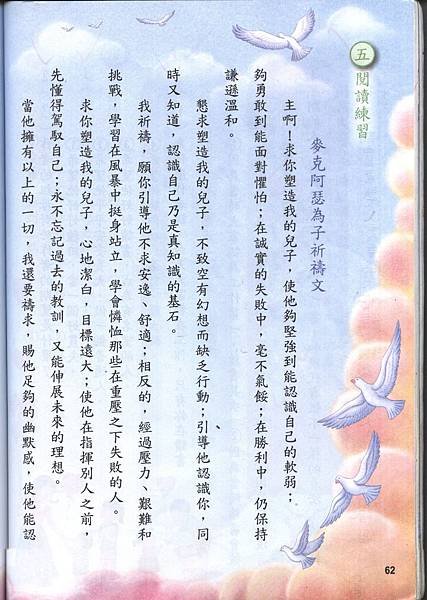 五 閱讀練習
麥克阿瑟為子祈禱文
主啊！求你塑造我的兒子，使他夠堅強到能認識自己的軟弱；
夠勇敢到能面對懼怕；在誠實的失敗中，毫不氣餒；在勝利中，仍保持
謙遜溫和。
懇求塑造我的兒子，不致空有幻想而缺乏行動；引導他認識你，同
時又知道，認識自己乃是真知識的基石。
我祈禱，願你引導他不求安逸、舒適；相反的，經過壓力、艱難和
挑戰，學習在風暴中挺身站立，學會憐恤那些在重壓之下失敗的人。
求你塑造我的兒子，心地潔白，目標遠大；使他在指揮別人之前，
先懂得駕馭自己；永不忘記過去的教訓，又能伸展未來的理想。
當他擁有以上的一切，我還要禱求，賜他足夠的幽默感，使他能認
62